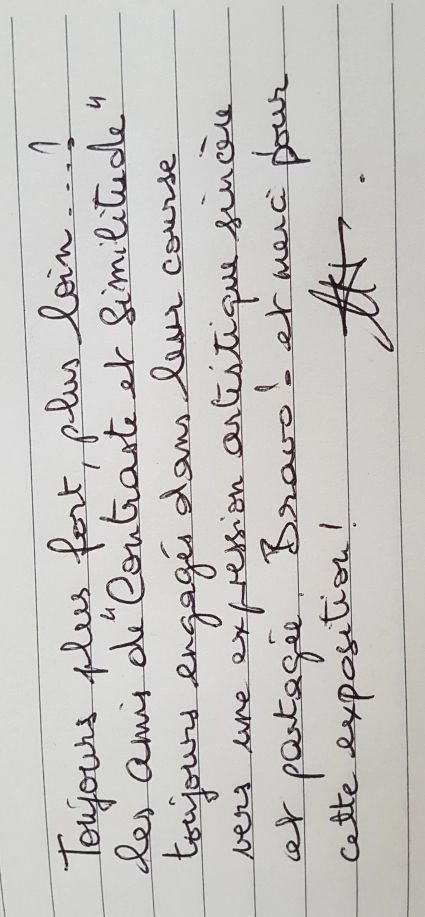 Toujours plus fort, plus loin....!
les amis de "Contraste et Similitude"
toujours engagés dans leur course
vers une expression artistique sincère
et partagée. Bravo! et merci pour
cette exposition!